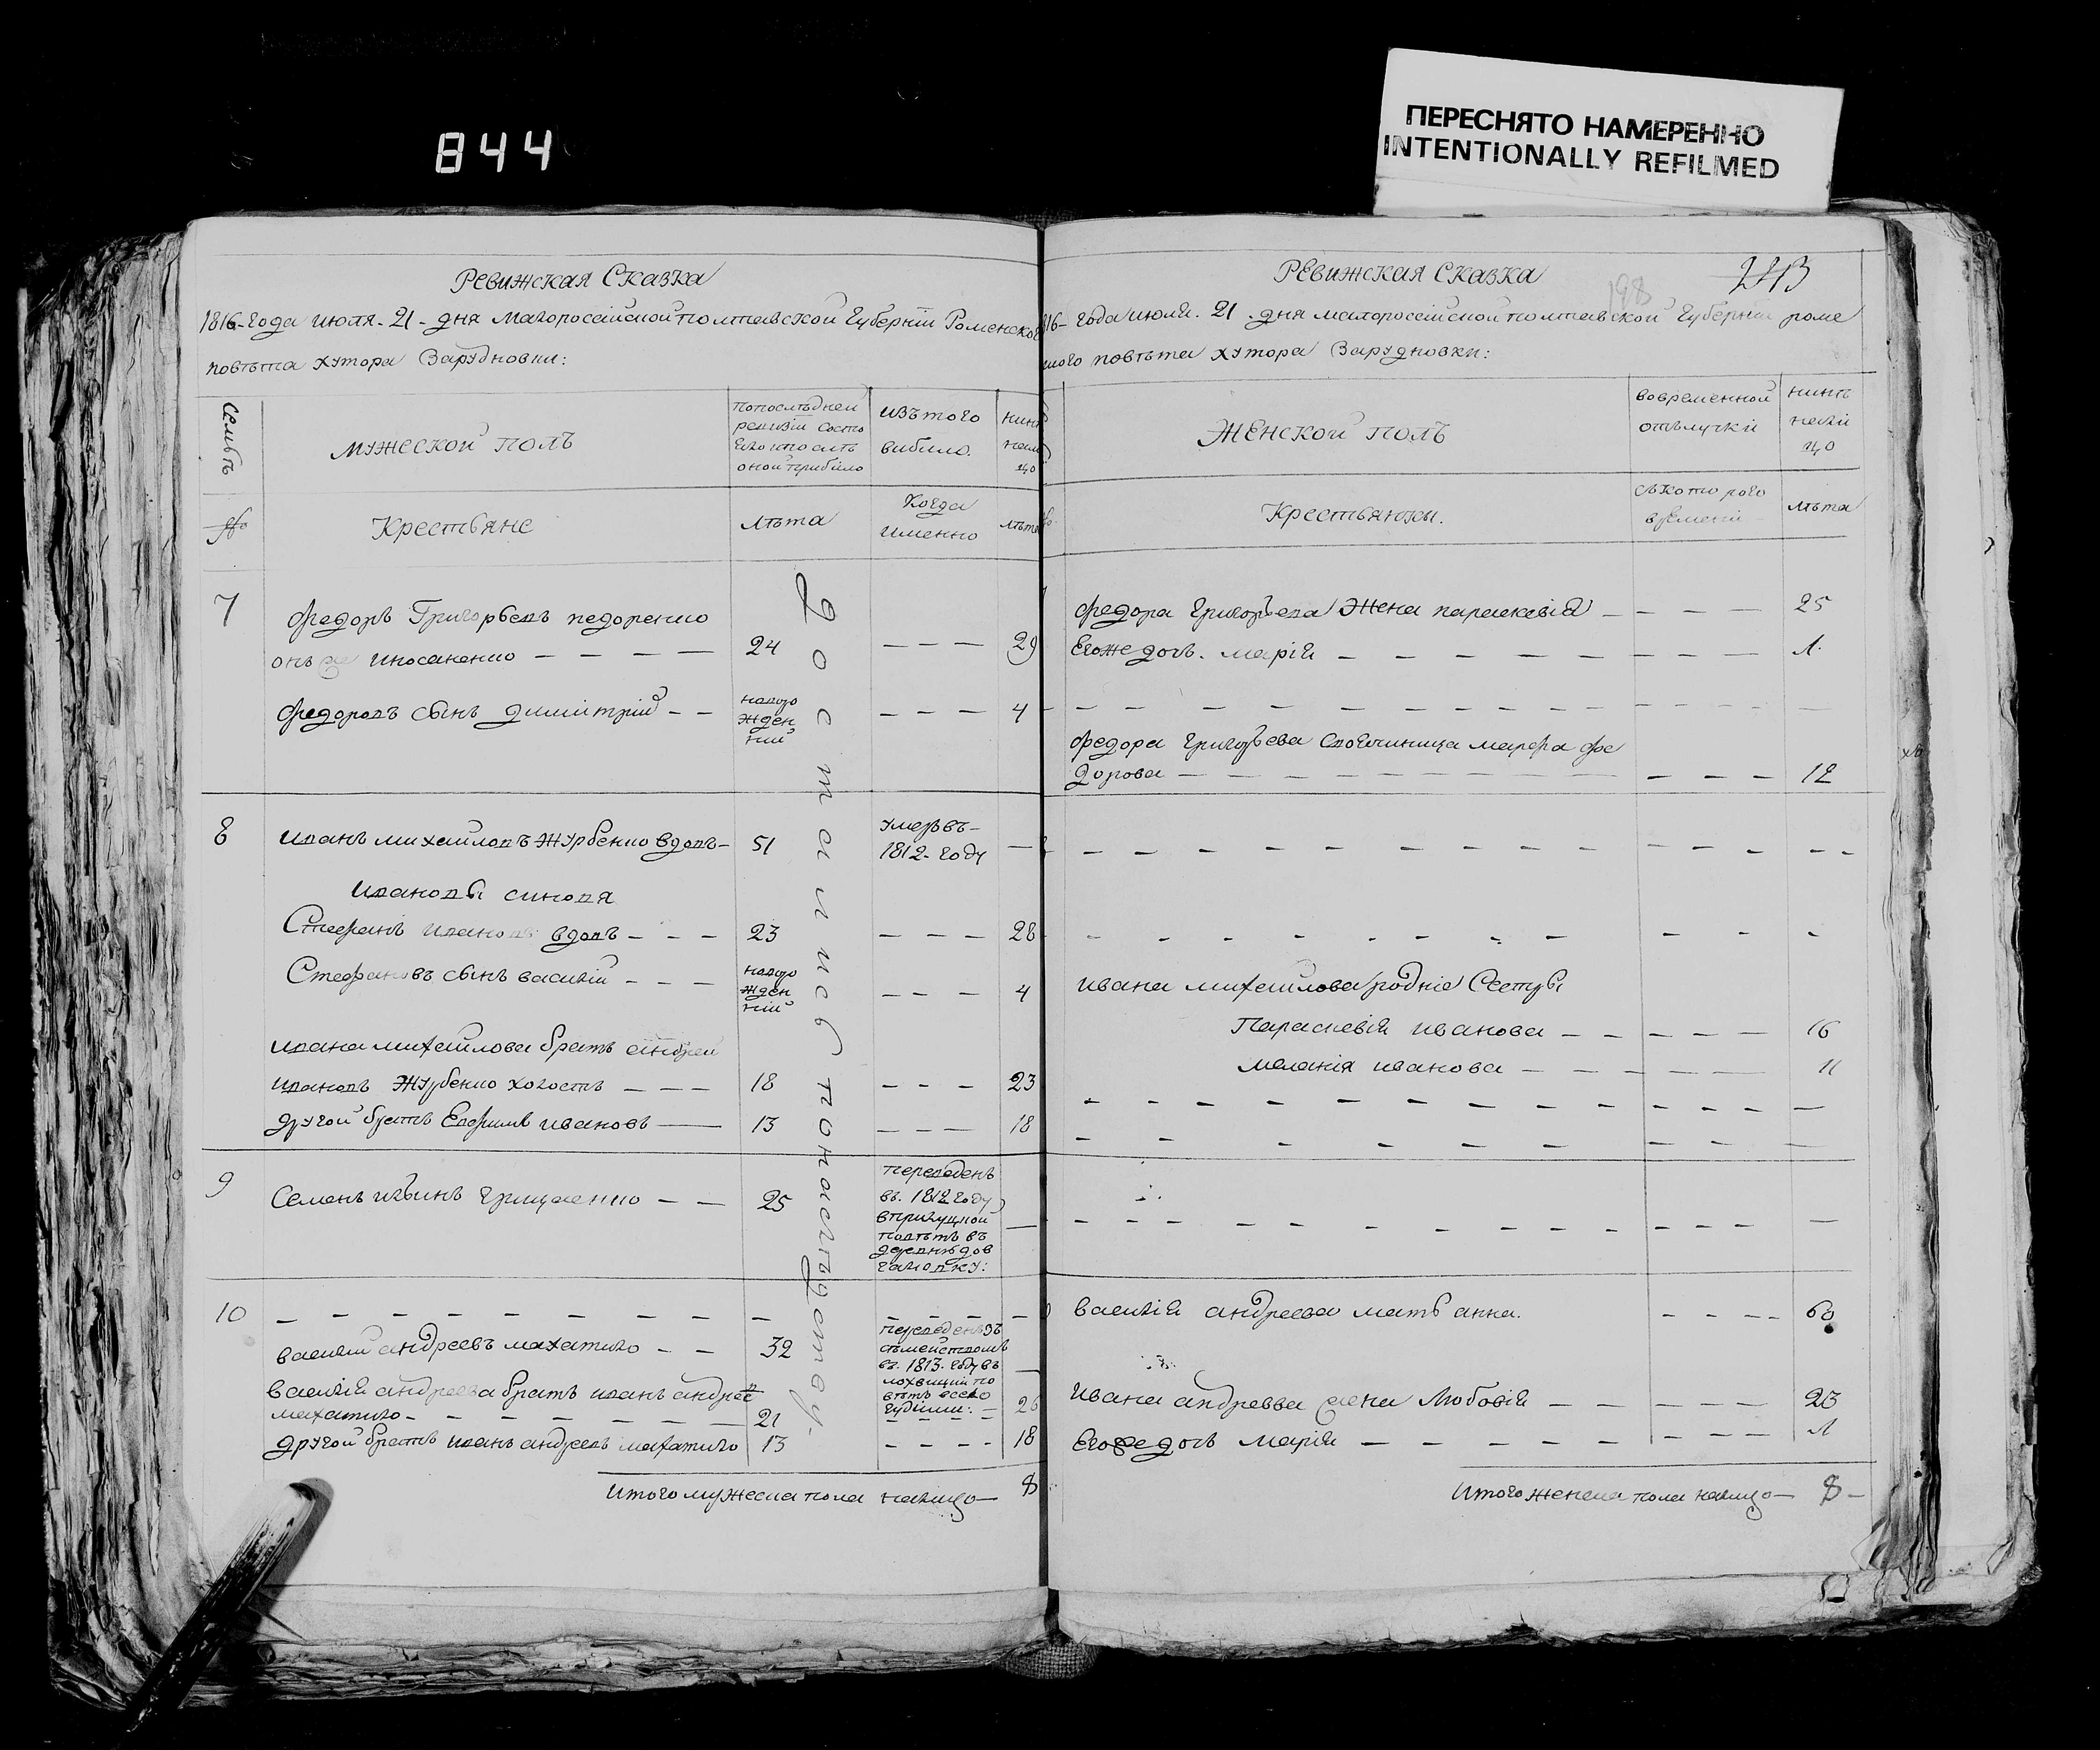 844
ПЕРЕСНЯТО НАМЕРЕННО
INTENTIONALLY REFILMED
Ревижская Сказка
1816-Года июля-21-дня Малороссійской полтавской Губерніи Роменско
повѣта хутора Зарудновки:
Семьѣ
мужеской полъ
попослѣдней
ревизіи состо
яло ипослѣ
оной прибыло
изътого
вибыло.
нинѣ
нали
цо
№
Крестьяне
лѣта
Когда
именно
лѣта
Достаєтся
7
Федоръ Григорьевъ педоренко
онъ же
24
— — —
29
Федоровъ сынъ димитрій — —
новоро
жден
ний
— — —
4
8
иванъ михайловъ Журбенко вдовъ —
51
умеръ въ —
1812-году
—
ивановы синовя
Стефанъ ивановъ вдовъ — — —
23
— — —
28
Стефановъ сынъ василій — — —
новоро
жден
ний
— — —
4
ивана михайлова братъ андрей
ивановъ Журбенко холостъ — — —
18
— — —
23
другой братъ Евфимъ ивановъ —
13
— — —
18
9
Семенъ ильинъ Грищенко — —
25
переведенъ
въ 1812 году
вприлуцкой
повѣтъ въ
деревню
—
10
— — — — — — — — —
василій андреевъ махатило — —
32
переведенъ зъ
съмействомъ
въ 1813-году въ
лохвицкій по
вѣтъ
—
василія андреева братъ иванъ андрее
махатило — — — — — — —
21
26
другой братъ иванъ андреевъ махатило
13
— — — —
18
итого мужеска пола налицо —
8
Ревижская Сказка
198
243
816-года июля. 21 дня малороссійской полтавской Губерніи роме
ного повѣта хутора Зарудновки:
Женской полъ
вовременной
отълучки
нинѣ
нали
цо
Крестьянки.
съкоторого
времени
лѣта
Федора Григорьева Жена параскевія — — — —
25
Егоже дочь. марія — — — — — — — — —
1.
Федора Григорьева своячиница марфа фе
дорова — — — — — — — — — — —
12
ивана михайлова родніе Сестры
Параскевія иванова — — — — —
16
меланія иванова — — — — — —
11
василія андреева мать анна.
— — — —
60
ивана андреева жена Любовія — — — — —
23
Егоже дочь марія — — — — — — — —
1
Итого женска пола налицо —
8 —